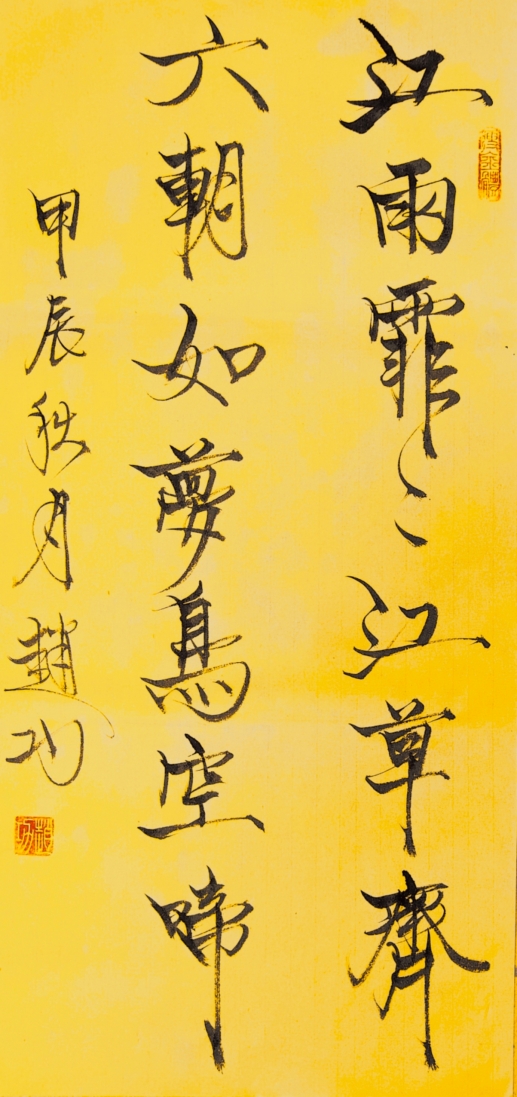 江雨霏〻江草齊
六朝如夢鳥空啼
甲辰秋月趙功
趙功